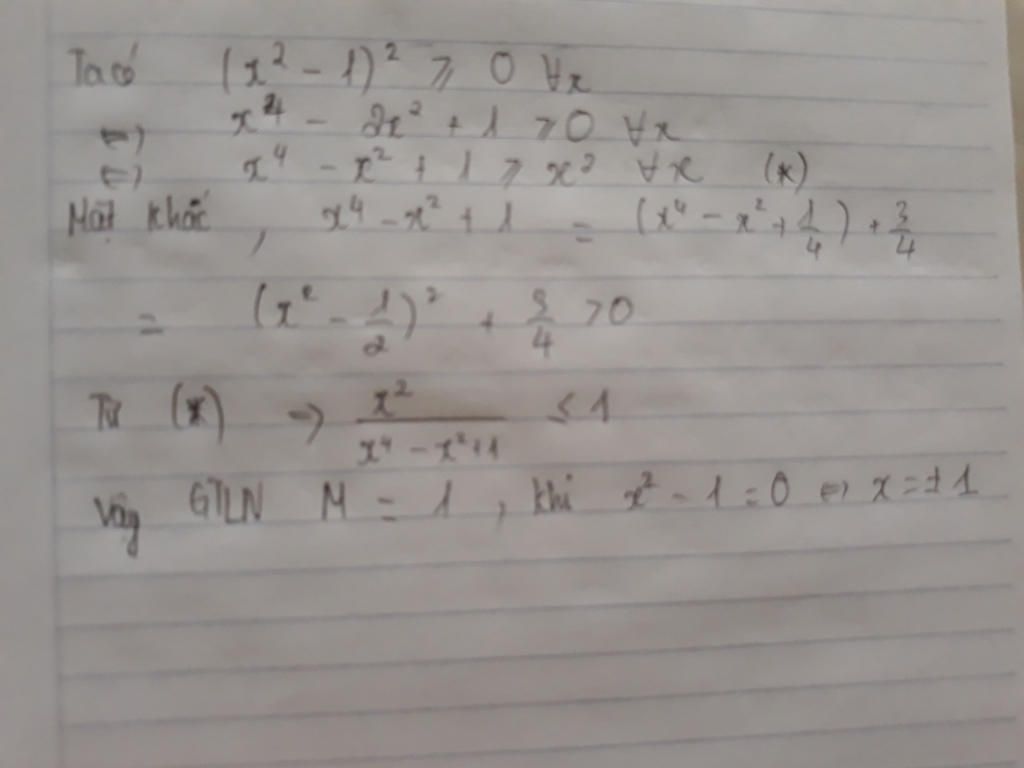 Ta có (x² - 1)² ⩾ 0 ∀x
⇔ x⁴ - 2x² + 1 ⩾ 0 ∀x
⇔ x⁴ - x² + 1 ⩾ x² ∀x (*)
Mặt khác, x⁴ - x² + 1 = (x⁴ - x² + 1/4) + 3/4
= (x² - 1/2)² + 3/4 > 0
Từ (*) ⇒ x²/(x⁴ - x² + 1) ≤ 1
Vậy GTLN M = 1, khi x² - 1 = 0 ⇔ x = ±1